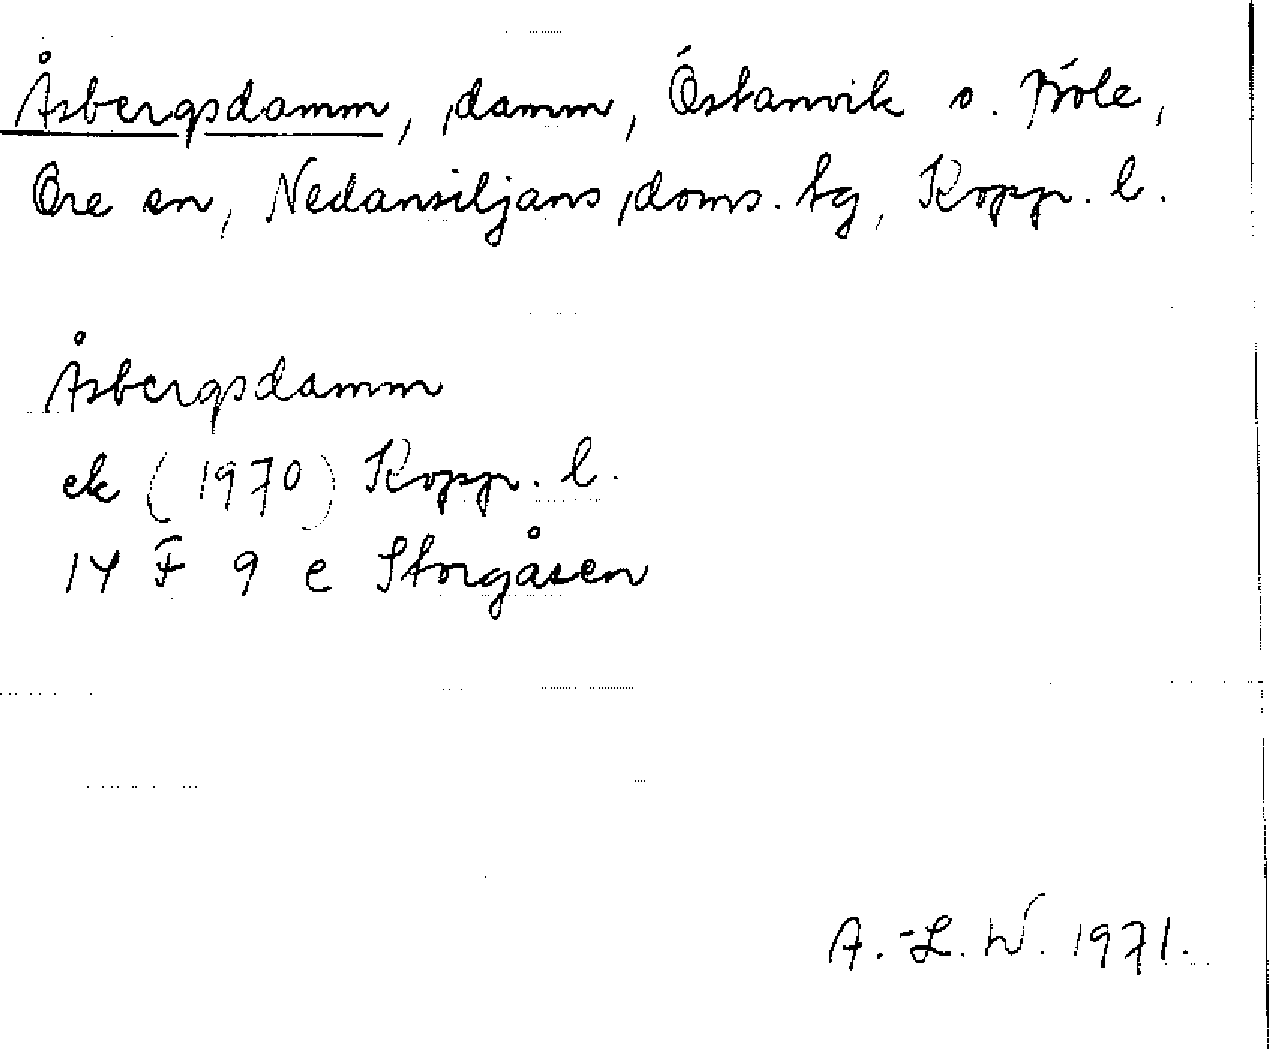 Åsbergsdamm, damm, Östanvik s. Kvle,
Ore sn, Nedansiljans doms. tg, Kopp. l.
Åsbergsdamm
ek (1970) Kopp. l.
14 F 9 e Storgåsen
A.-L. W. 1971.